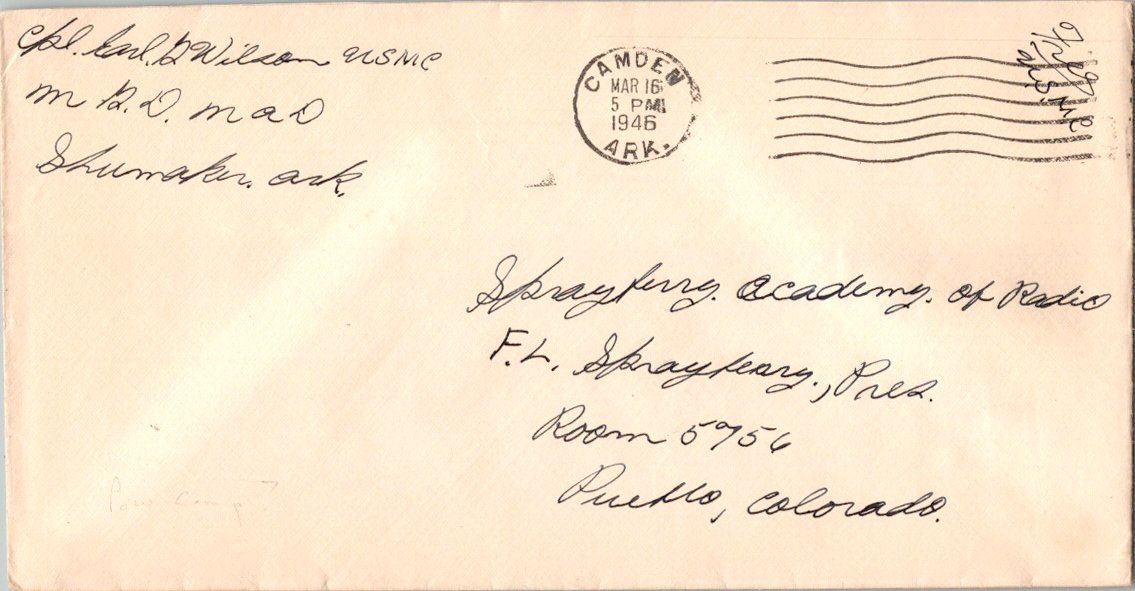 Cpl. Earl. D Wilson USMC
M B. D. M a D
Shumaker. ark.
CAMDEN
MAR 16
5 PM
1946
ARK.
Sprayberry. academy. of Radio
F. L. Sprayberry., Pres.
Room 5756
Pueblo, Colorado.